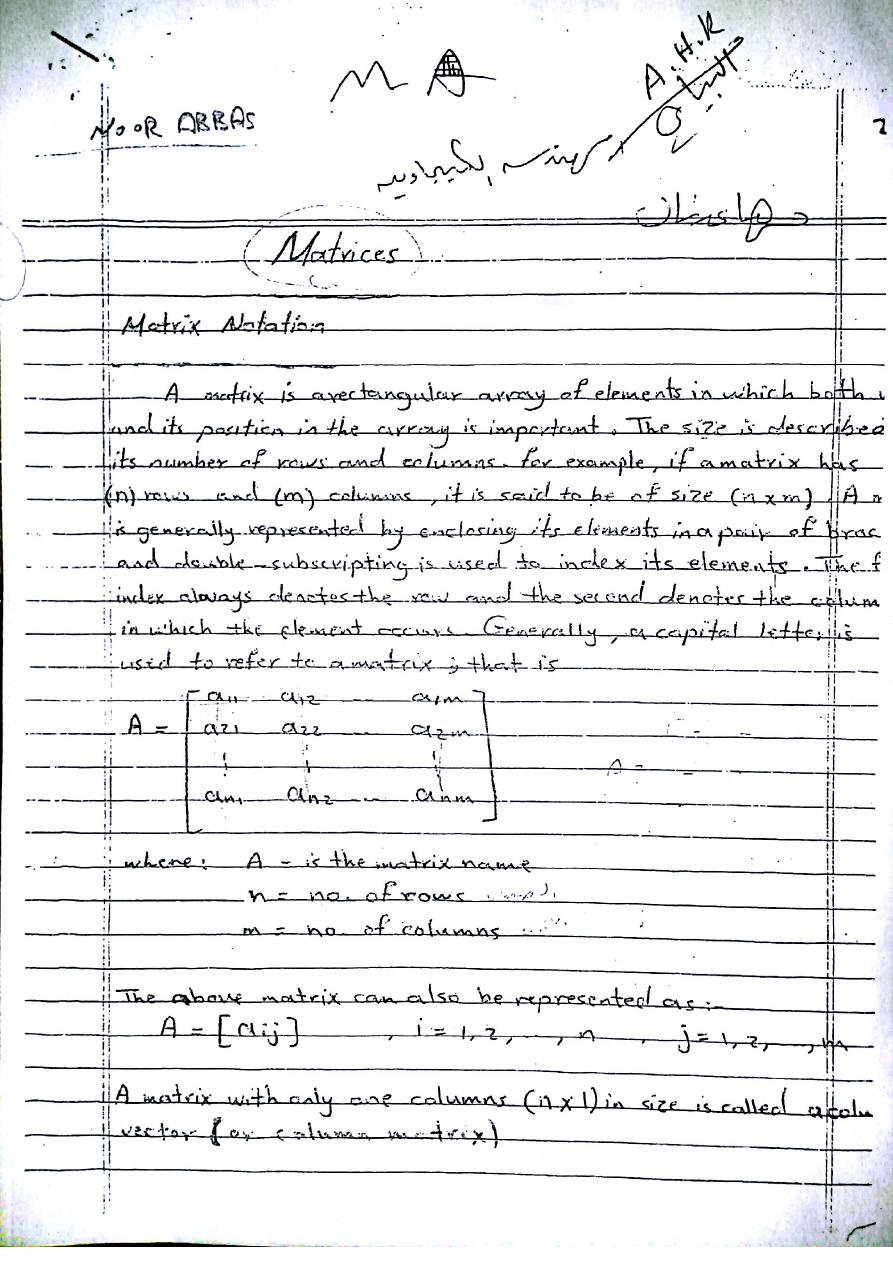 M A
A.H.K
NOOR ABBAS
2
Matrices
Matrix Notation
A matrix is a rectangular array of elements in which both
and its position in the array is important. The size is described
its number of rows and columns. for example, if a matrix has
(n) rows and (m) columns, it is said to be of size (n x m). A m
is generally represented by enclosing its elements in a pair of brac
and double-subscripting is used to index its elements. The f
index always denotes the row and the second denotes the colum
in which the element occurs. Generally, a capital letter is
used to refer to a matrix; that is
a11 a12 ... a1m
A = a21 a22 ... a2m
an1 an2 ... anm
A =
where: A - is the matrix name
n = no. of rows
m = no. of columns
The above matrix can also be represented as:-
A = [aij] , i = 1, 2, ..., n , j = 1, 2, ..., m
A matrix with only one columns (n x 1) in size is called a colu
vector (or column matrix)